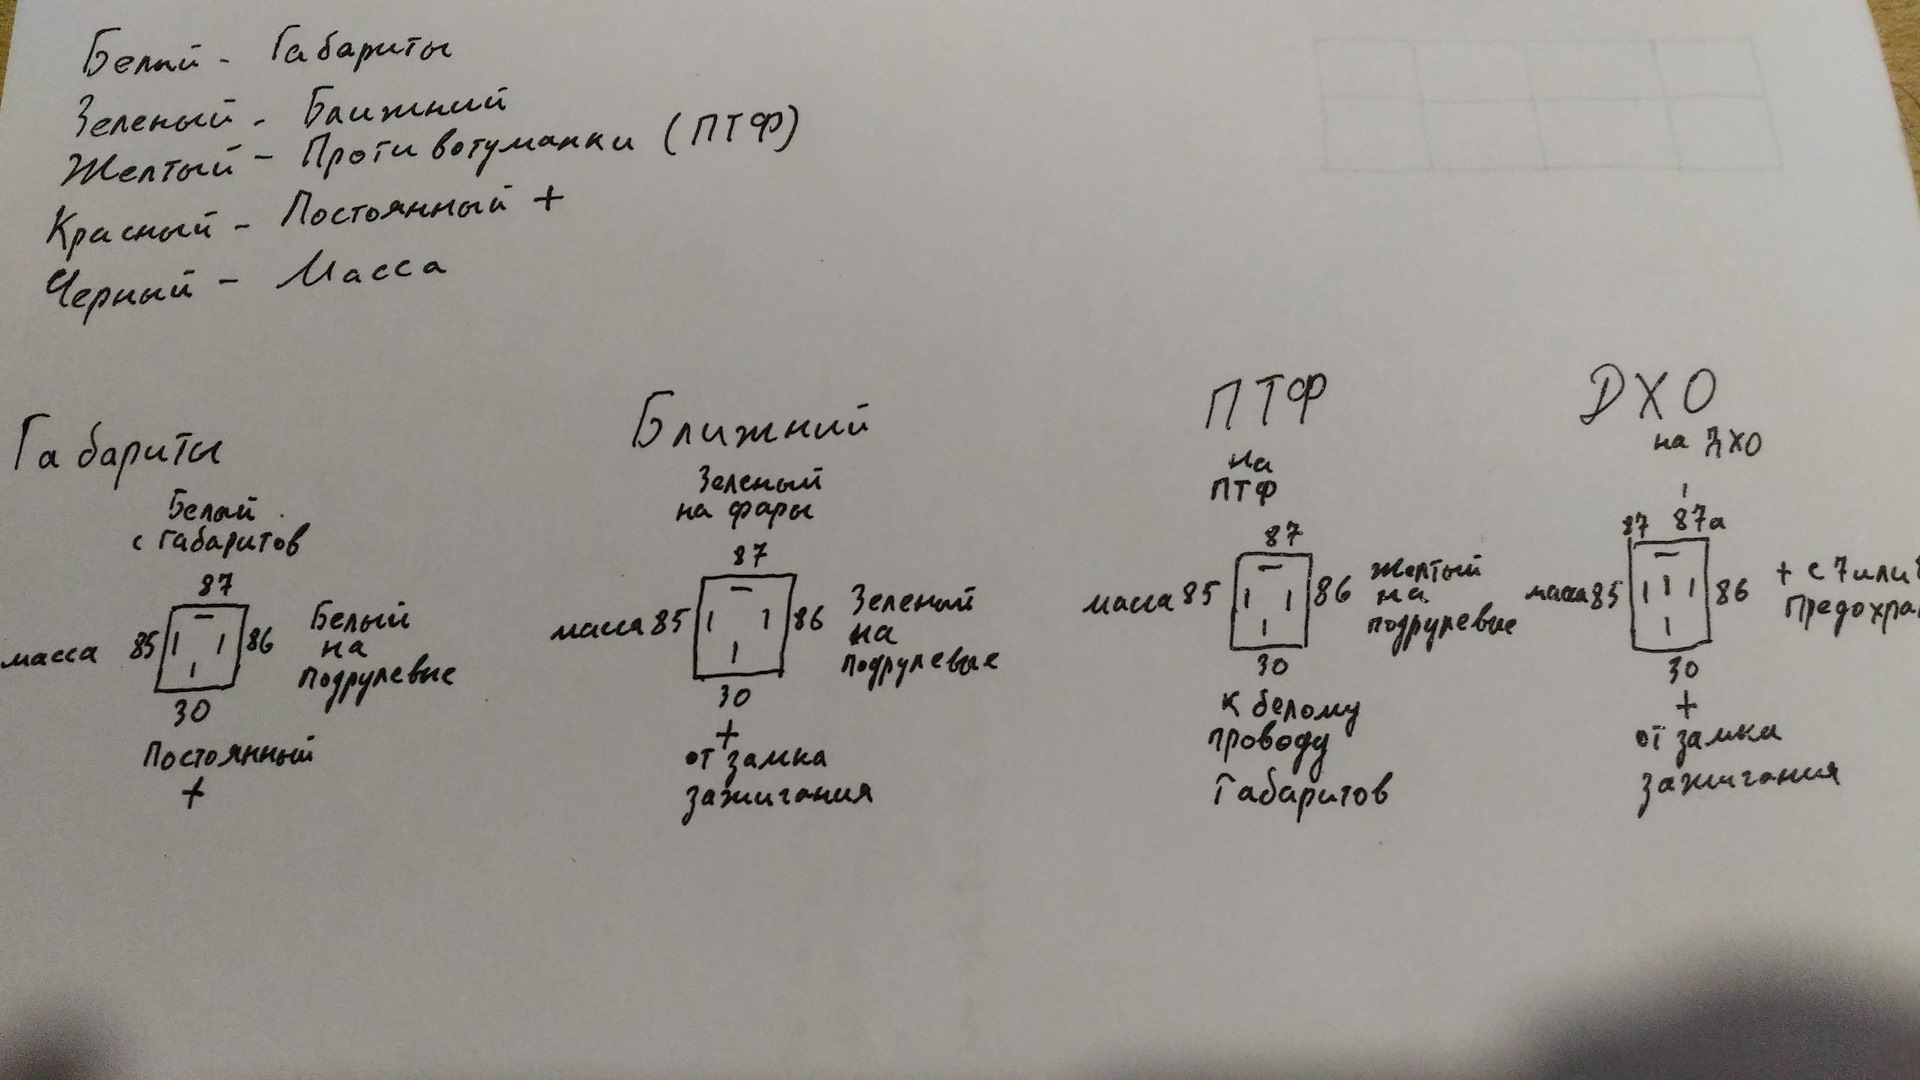 Белый - Габариты
Зеленый - Ближний
Желтый - Противотуманки (ПТФ)
Красный - Постоянный +
Черный - Масса
Габариты
Белый
с габаритов
87
масса 85
86
Белый
на
подрулевые
30
Постоянный
+
Ближний
Зеленый
на фары
87
масса 85
86
Зеленый
на
подрулевые
30
+
от замка
зажигания
ПТФ
на
ПТФ
87
масса 85
86
Желтый
на
подрулевые
30
к белому
проводу
Габаритов
ДХО
на ДХО
87 87а
масса 85
86
+ с 7 или
30
+
от замка
зажигания